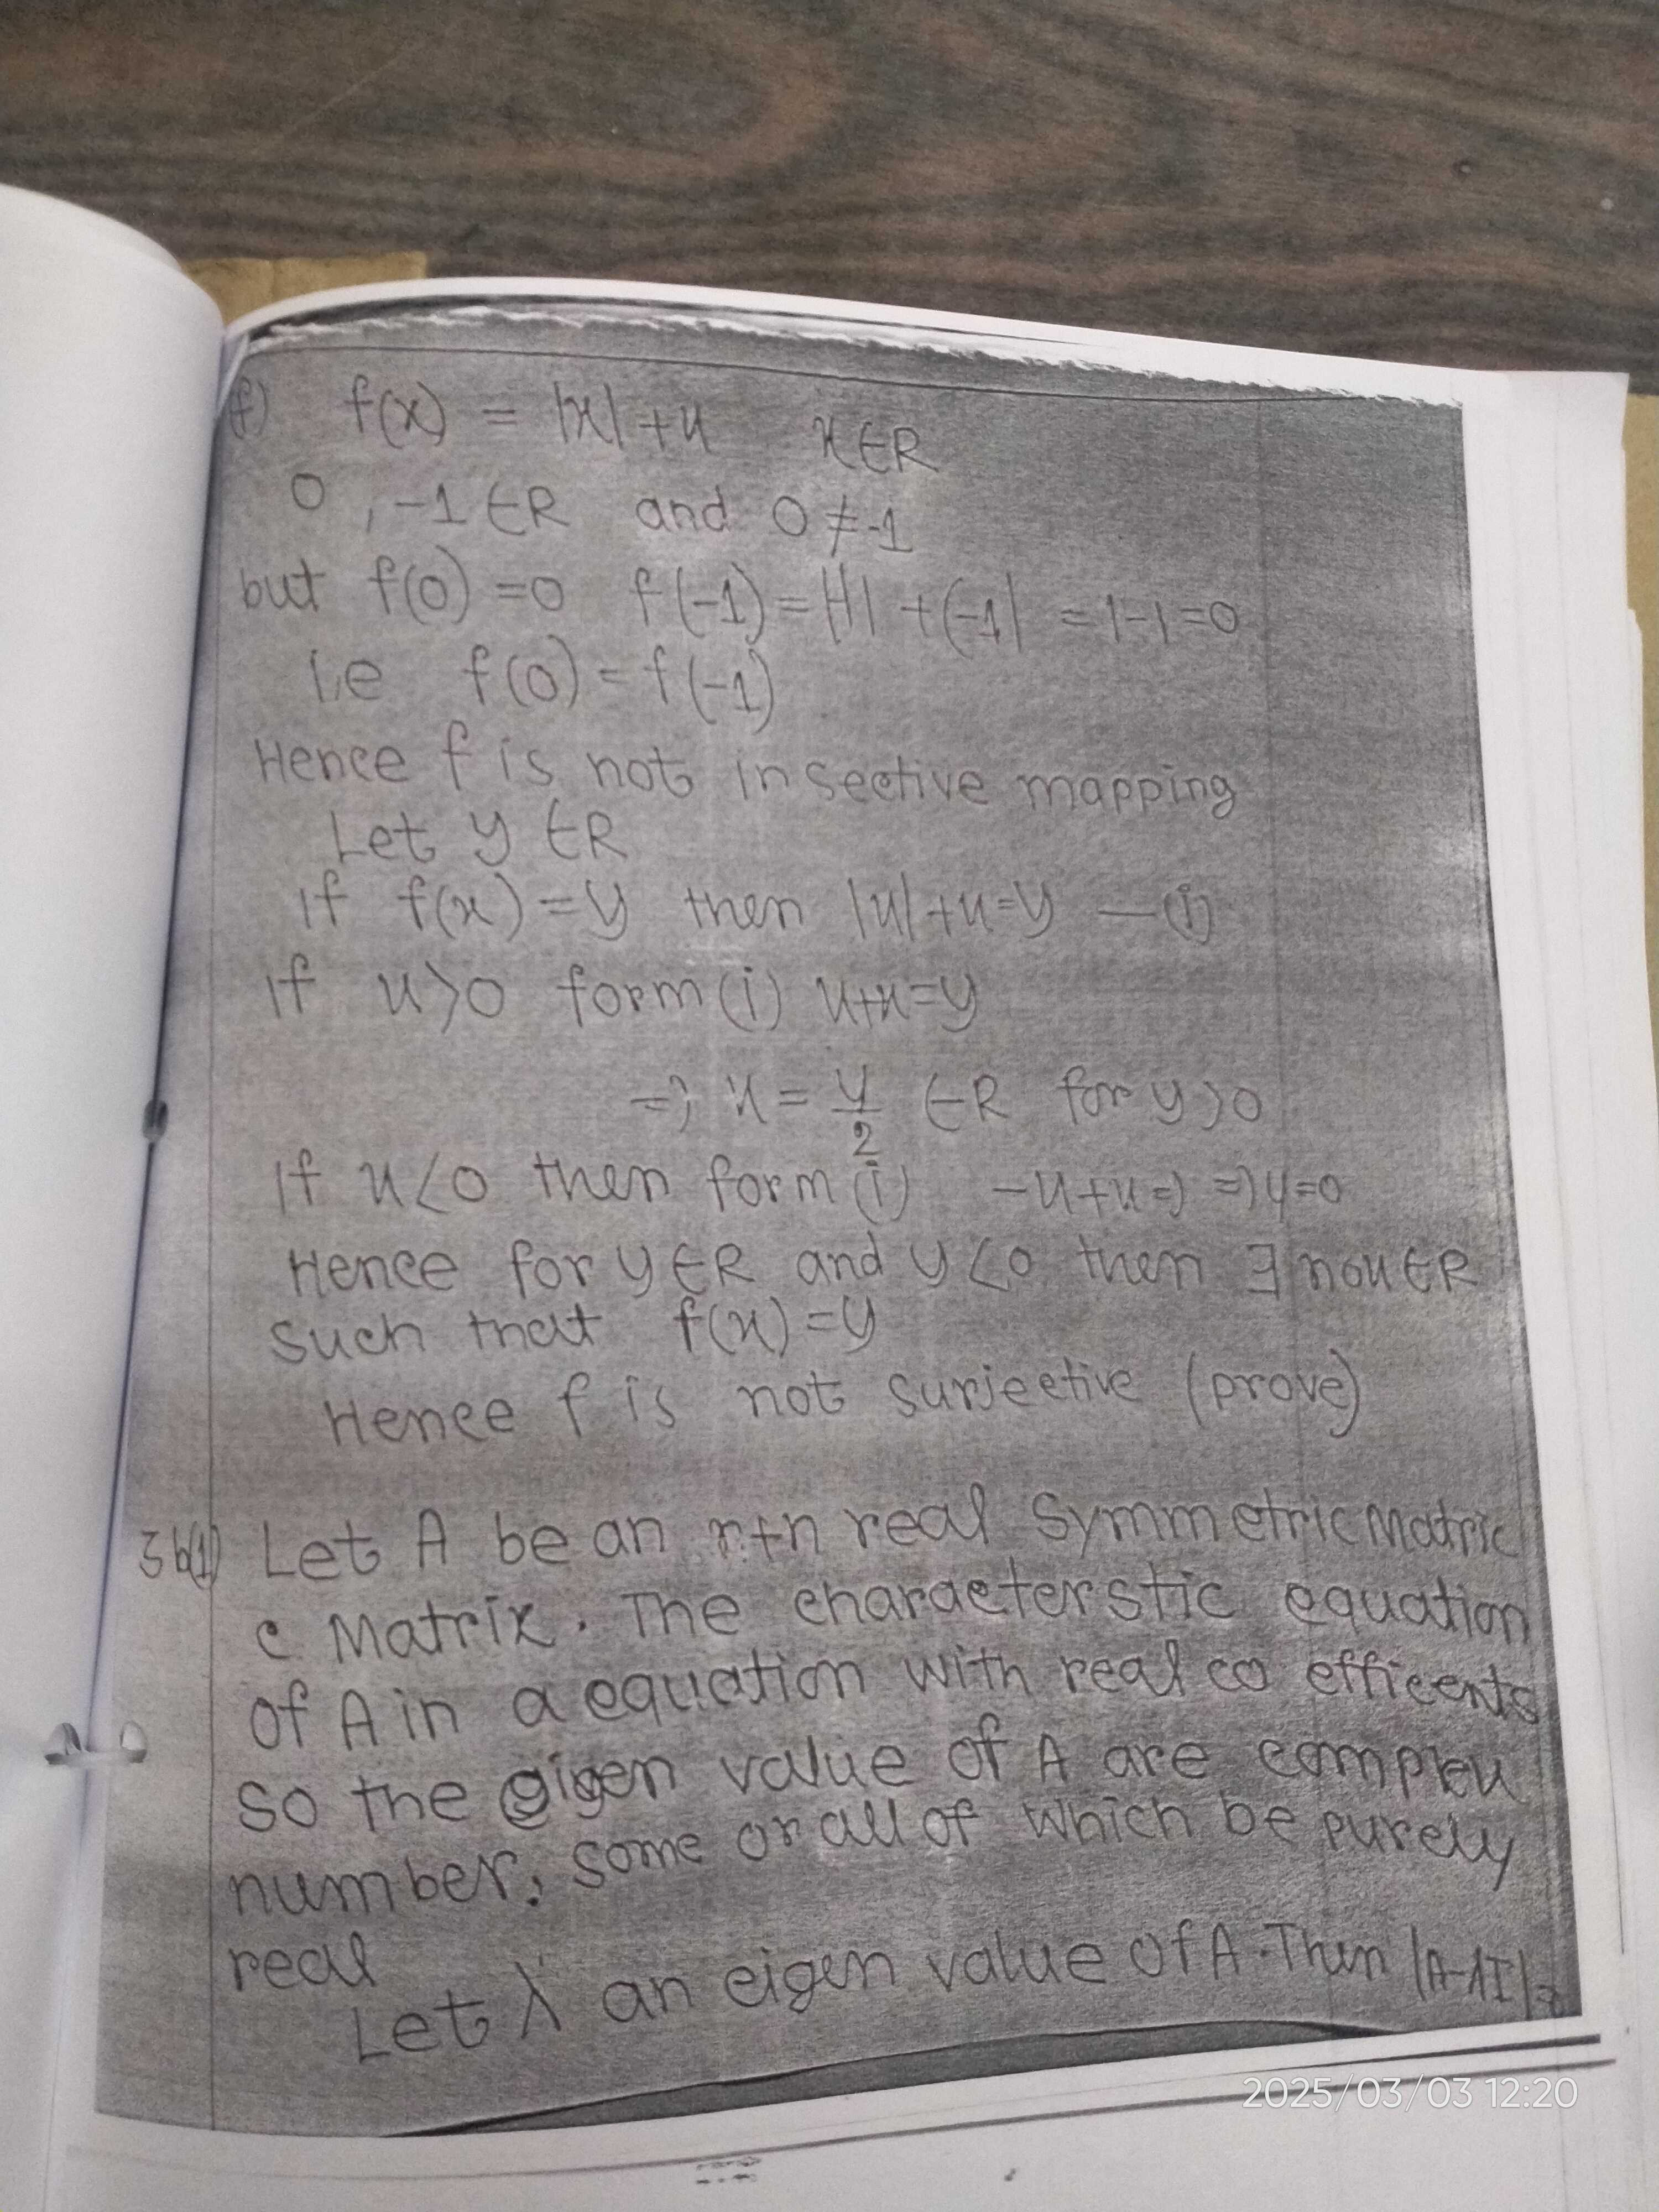 (f) f(x) = |x|+x x∈R
0, -1∈R and 0≠-1
but f(0)=0 f(-1)=|-1|+(-1| =1-1=0
i.e f(0)=f(-1)
Hence f is not insective mapping
Let y ∈R
If f(x)=y then |x|+x=y —(i)
If x>0 form (i) x+x=y
=> x = y/2 ∈R for y>0
If x<0 then form (i) -x+x=> =>y=0
Hence for y∈R and y<0 then ∃ no x∈R
such that f(x)=y
Hence f is not surjective (prove)
3b(1) Let A be an n+n real symmetric Matric
c Matrix. The characterstic equation
of A in a equation with real co efficents
so the eigen value of A are complex
number, some or all of which be purely
real
Let λ an eigen value of A. Then |A-λI|=0
2025/03/03 12:20